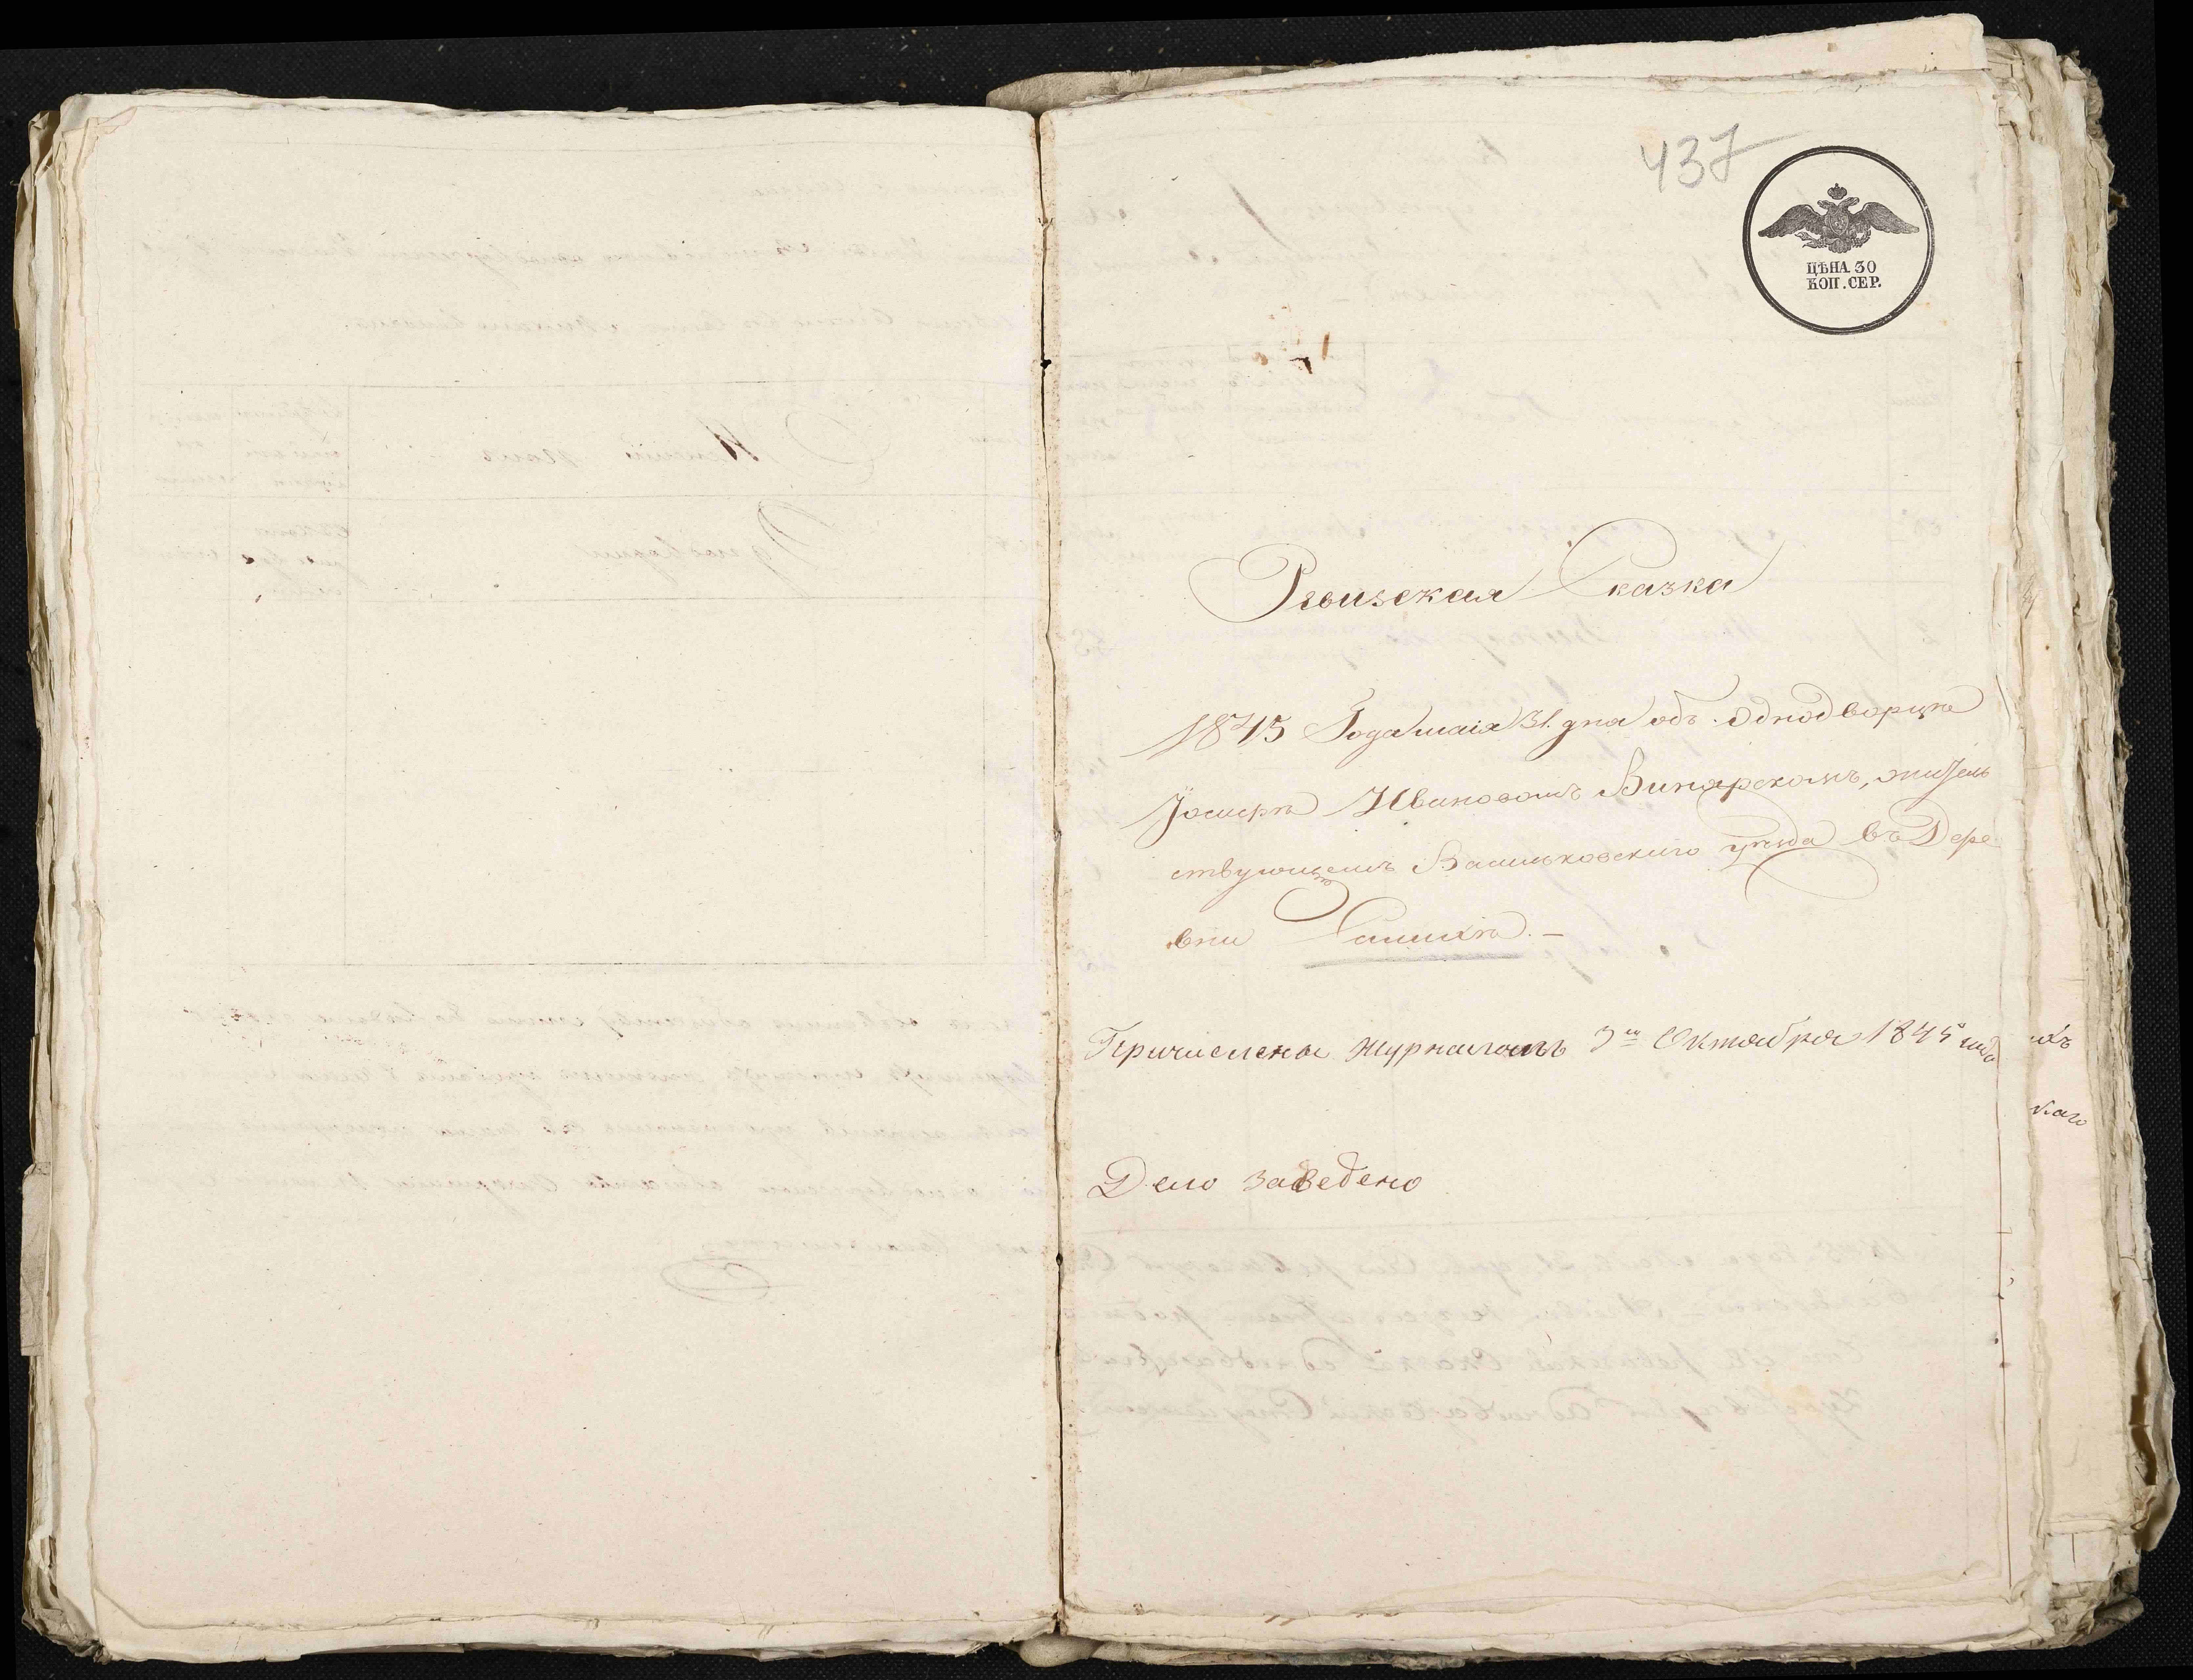 437
ЦѢНА 30
КОП. СЕР.
Ревизская Сказка
1845 Года маія 31. дня объ Однодворцѣ
Іосифѣ Ивановомъ Винярскомъ, жител
ствующемъ Васильковскаго уѣзда въ Дере
вни
Причислены журналомъ 3го Октября 1845 года
Дело заведено
ихъ
каго